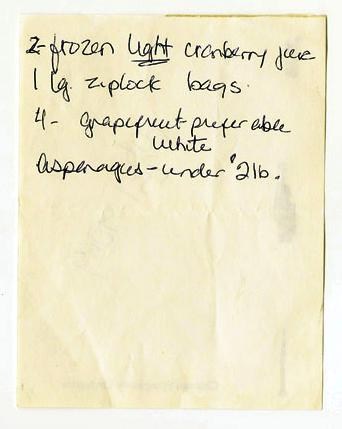 2- frozen light cranberry juce
1 lg. ziplock bags.
4- grapefruit preferable
white
asparagus - under $2 lb.